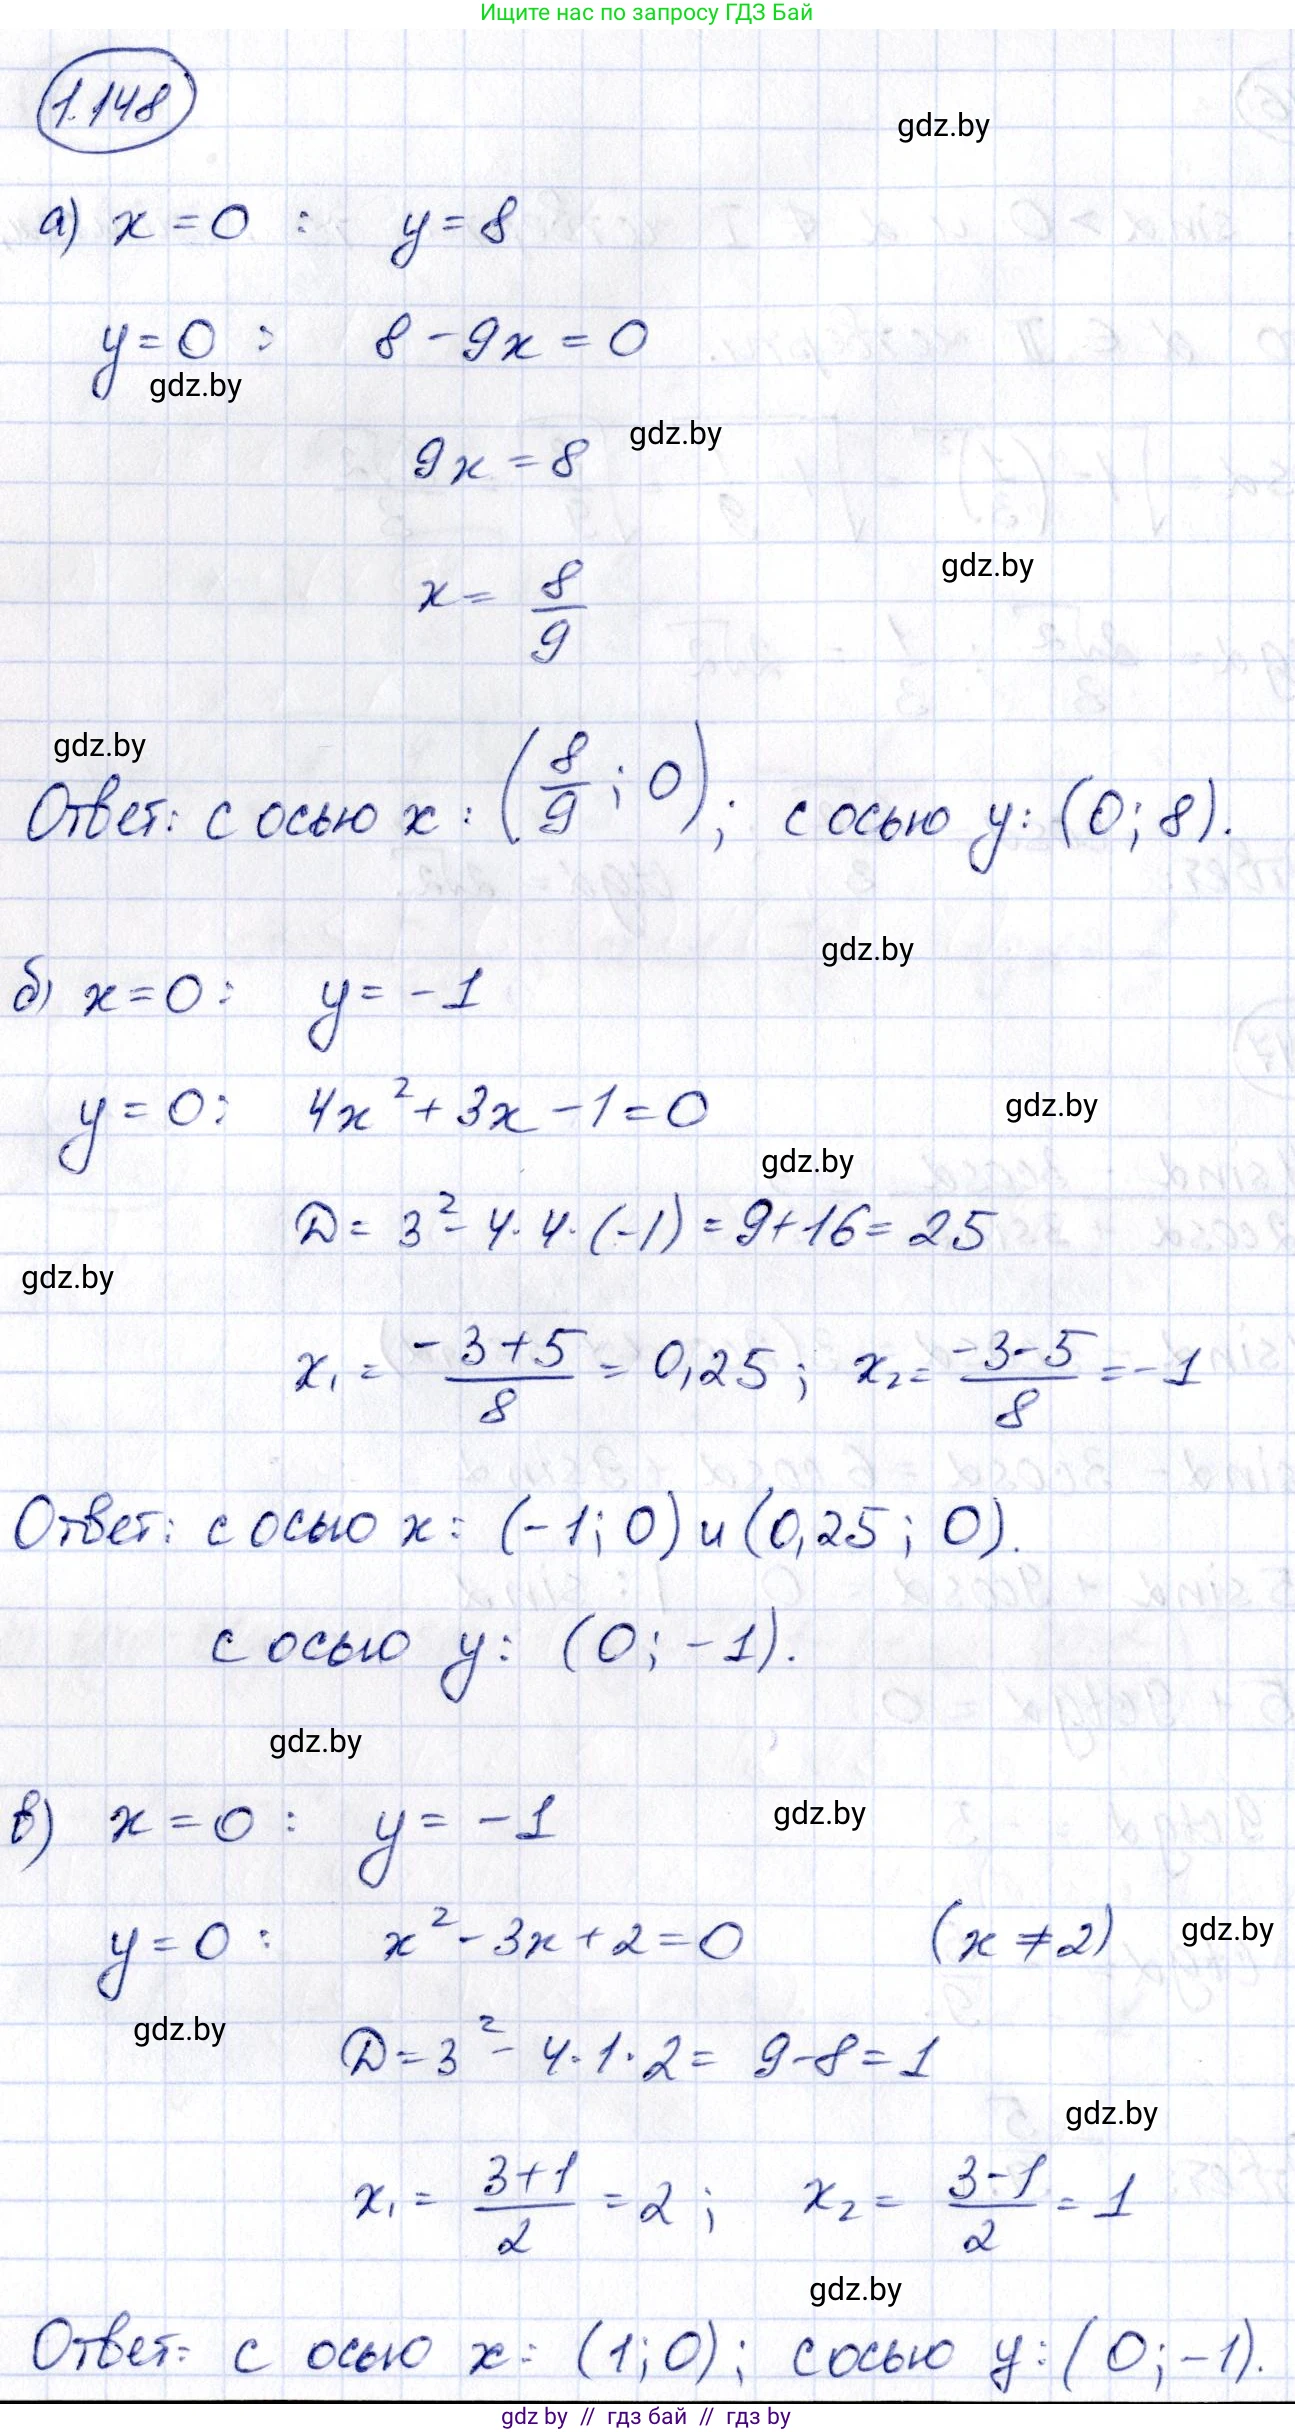 Ищите нас по запросу ГДЗ Бай
1.148
gdz.by
а) x = 0 : y = 8
y = 0 : 8 - 9x = 0
gdz.by
gdz.by
9x = 8
gdz.by
x = 8/9
gdz.by
Ответ: с осью x : (8/9 ; 0); с осью y: (0; 8).
gdz.by
б) x = 0 : y = -1
y = 0 : 4x² + 3x - 1 = 0
gdz.by
gdz.by
D = 3² - 4·4·(-1) = 9 + 16 = 25
gdz.by
x₁ = (-3+5)/8 = 0,25 ; x₂ = (-3-5)/8 = -1
Ответ: с осью x : (-1; 0) и (0,25 ; 0).
с осью y: (0; -1).
gdz.by
gdz.by
в) x = 0 : y = -1
y = 0 : x² - 3x + 2 = 0 (x ≠ 2)
gdz.by
gdz.by
D = 3² - 4·1·2 = 9 - 8 = 1
gdz.by
x₁ = (3+1)/2 = 2 ; x₂ = (3-1)/2 = 1
gdz.by
Ответ: с осью x : (1; 0); с осью y: (0; -1).
gdz.by // гдз бай // гдз by